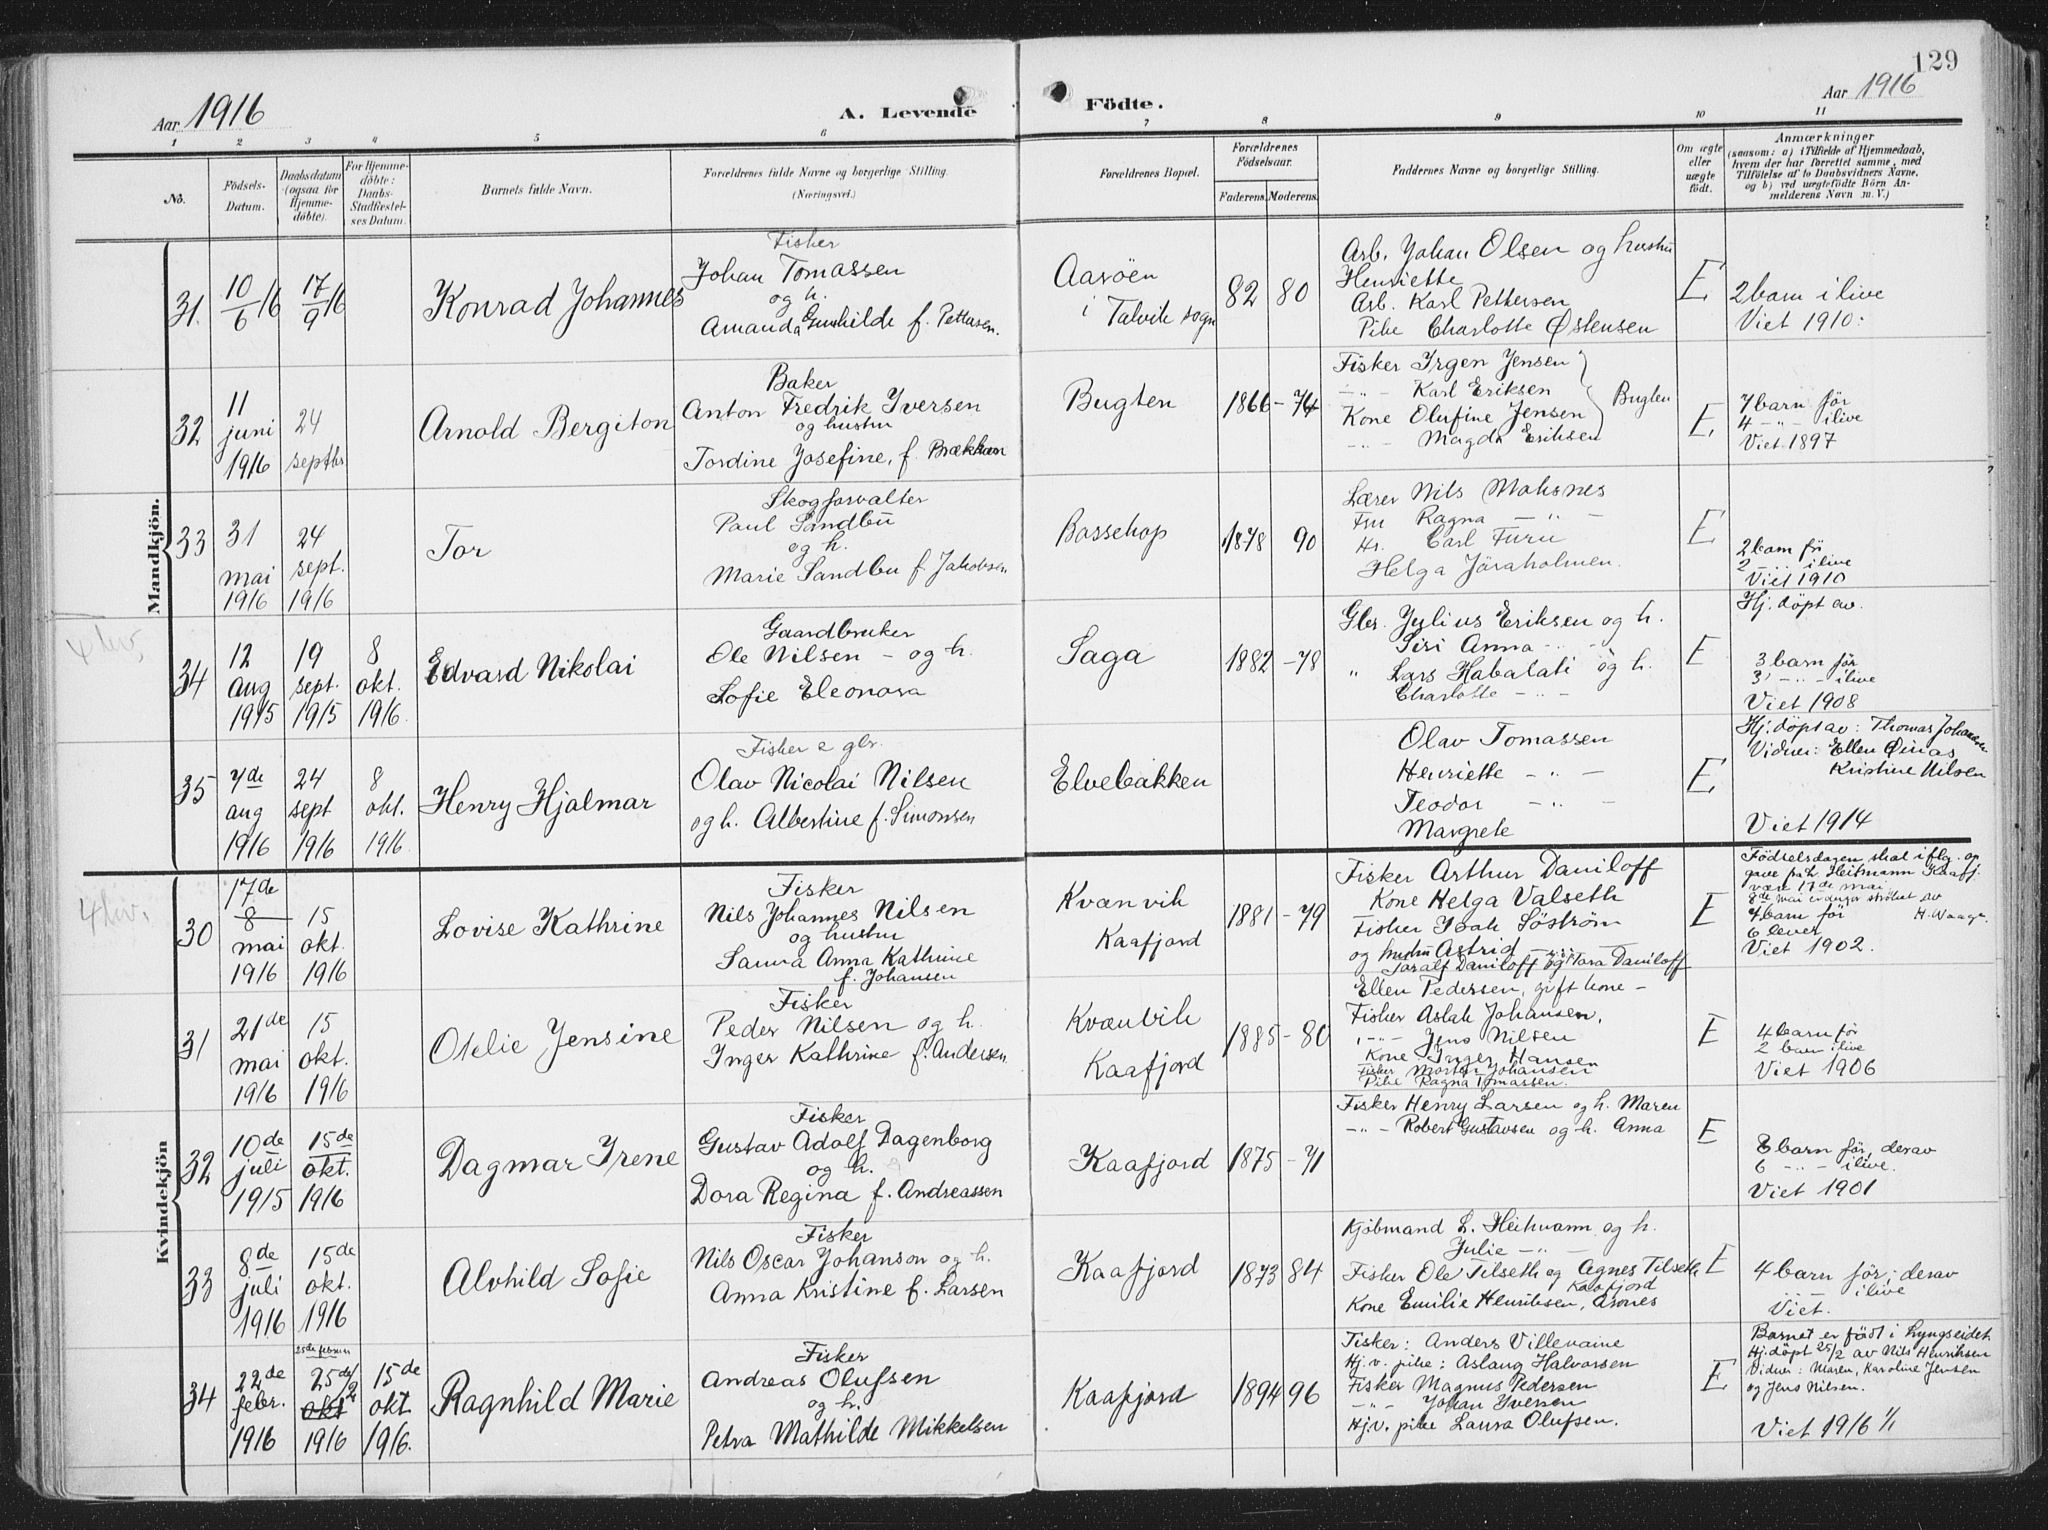 129
Aar 1916
A. Levende
Födte.
Aar 1916
1 2 3 4 5 6 7 8 9 10 11
No.
Födsels-Datum.
Daabsdatum (ogsaa for Hjemmedöbte).
For Hjemmedöbte: Daabs-Stadfæstelses Datum.
Barnets fulde Navn.
Forældrenes fulde Navne og borgerlige Stilling.
(Næringsvei.)
Forældrenes Bopæl.
Forældrenes Födselsaar.
Faderens. Moderens.
Faddernes Navne og borgerlige Stilling.
Om ægte eller uægte födt.
Anmærkninger
(saasom: a) i Tilfælde af Hjemmedaab, hvem der har forrettet samme, med Tilföielse af to Daabsvidners Navne, og b) ved uægtefödte Börn Anmelderens Navn m. V.)
Mandkjön.
31. 10/6 16 17/9 16
Konrad Johannes
Fisker
Johan Tomassen
og h.
Amanda Gunhilde f. Pettersen.
Aaröen
i Talvik sogn
82 80
Arb. Johan Olsen og hustru
Henriette
Arb. Karl Pettersen
Pike Charlotte Østensen
E
2 barn i live
Viet 1910.
32 11 juni 1916 24 septbr.
Arnold Bergiton
Baker
Anton Fredrik Iversen
og hustru
Tordine Josefine, f. Brækkan
Bugten
1866 - 74
Fisker Irgen Jensen
-"- Karl Eriksen
Kone Olufine Jensen
-"- Magda Eriksen
Bugten
E
7 barn før
4 -"- i live
Viet 1897
33 31 mai 1916 24 sept. 1916
Tor
Skogforvalter
Paul Sandbu
og h.
Marie Sandbu f. Jakobsen
Bossekop
1878 90
Lærer Nils Moksnes
Fru Ragna -"-
Hr. Carl Furu
Helga Jöraholmen.
E
2 barn før
2 -"- i live
Viet 1910
4 lev
34 12 aug 1915 19 sept. 1915 8 okt. 1916.
Edvard Nikolai
Gaardbruker
Ole Nilsen - og h.
Sofie Eleonora
Saga
1882 - 78
Gbr. Julius Eriksen og h.
Siri Anna -"-
" Lars Habalati og h.
Charlotte -"-
E
Hj. döpt av.
3 barn før
3 -"- i live
Viet 1908
35 7de aug 1916 24 sept 1916 8 okt. 1916.
Henry Hjalmar
Fisker & gbr.
Olav Nicolai Nilsen
og h. Albertine f. Simonsen
Elvebakken
Olav Tomassen
Henriette -"-
Teodor -"-
Margrete
E
Hj. döpt av: Thomas Johansen
Vidner: Ellen Ømas
Kristine Nilsen
Viet 1914
Kvindekjön
4 liv.
30 17de 8 mai 1916 15 okt. 1916
Lovise Kathrine
Fisker
Nils Johannes Nilsen
og hustru
Sanna Anna Kathrine
f. Johansen
Kvænvik
Kaafjord
1881 - 79
Fisker Arthur Daniloff
Kone Helga Valseth
Fisker Isak Söström
og hustru Astrid -"-
Toralf Daniloff og Tora Daniloff
Ellen Pedersen, gift kone -
E
Födselsdagen skal iflg. op
gave fra hr. Heitmann Kaafj.
være 17de mai
8de mai er derfor strøket av
H. Waage
7 barn før
6 lever
Viet 1902.
31 21de mai 1916 15 okt. 1916
Otelie Jensine
Fisker
Peder Nilsen og h.
Inger Kathrine f. Andersen
Kvænvik
Kaafjord
1885 - 80
Fisker Aslak Johansen,
-"- Jens Nilsen
Kone Inger Hansen
Fisker Morten Johansen
Pike Ragna Tomassen.
E
4 barn før
2 barn i live
Viet 1906
32 10de juli 1915 15de okt. 1916
Dagmar Irene
Fisker
Gustav Adolf Dagenborg
og h.
Dora Regina f. Andreassen
Kaafjord
1875 - 71
Fisker Henry Larsen og h. Maren
-"- Robert Gustavsen og h. Anna
E
8 barn før, derav
6 -"- i live.
Viet 1901
33 8de juli 1916 15de okt. 1916
Alvhild Sofie
Fisker
Nils Oscar Johanson og h.
Anna Kristine f. Larsen
Kaafjord
1873 84
Kjöbmand L. Heitmann og h.
Julie -"-
Fisker Ole Tilseth og Agnes Tilseth
Kaafjord
Kone Emilie Henriksen, Arones
E
4 barn før; derav
i live
Viet.
34 22de febr. 1916 25de februar 25de/2 okt 1916 15de okt 1916.
Ragnhild Marie
Fisker
Andreas Olufsen
og h.
Petra Mathilde Mikkelsen
Kaafjord
1894 96
Fisker: Anders Villevaine
Hj. v. pike: Aslaug Halvorsen
Fisker Magnus Pedersen
-"- Johan Iversen
Hj. v. pike Laura Olufsen.
E
Barnet er född i Lyngseidet
Hj. döpt 25/2 av Nils Henriksen
Vidner: Maren, Karoline Jensen
og Jens Nilsen.
Viet 1916 1/1